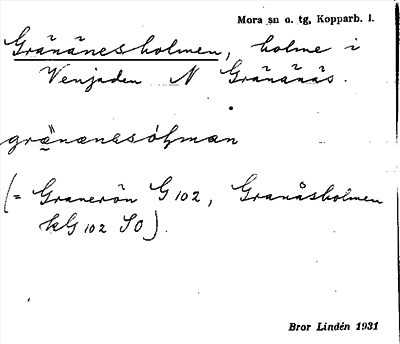 Mora sn o. tg, Kopparb. l.
Gränänesholmen, holme i
Venjaden N Gränänäs.
gränänesóḷman
(= Granerön G 102, Granåsholmen
kG 102 SO).
Bror Lindén 1931